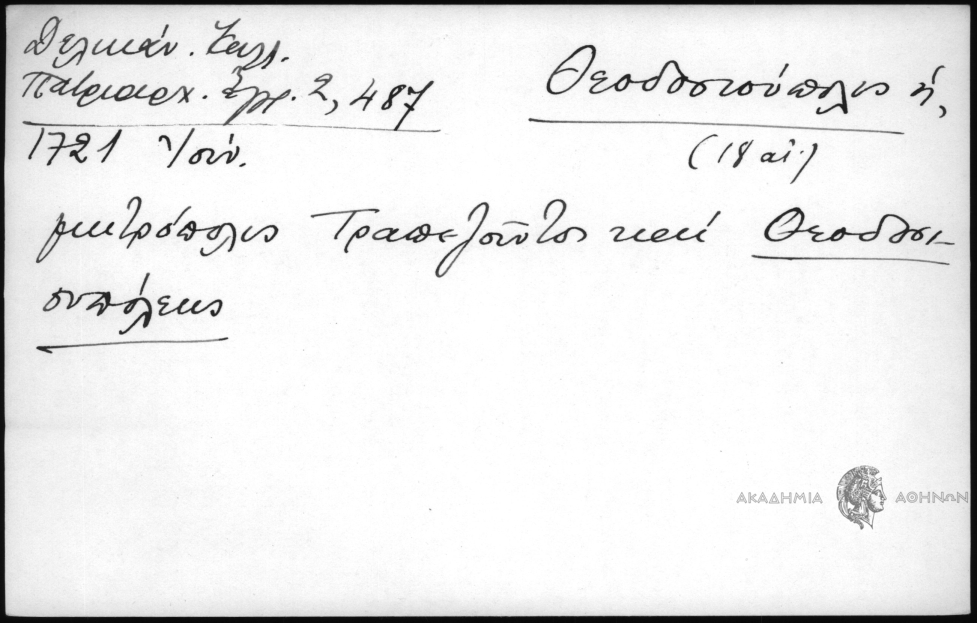 Δελικάν. Καλλ.
Πατριαρχ. Ἔγγρ. 2, 487
1721 Ἰούν.
Θεοδοσιούπολις ἡ,
(18 αἰ.)
μητρόπολις Τραπεζοῦντος καί Θεοδοσι-
ουπόλεως
ΑΚΑΔΗΜΙΑ ΑΘΗΝΩΝ